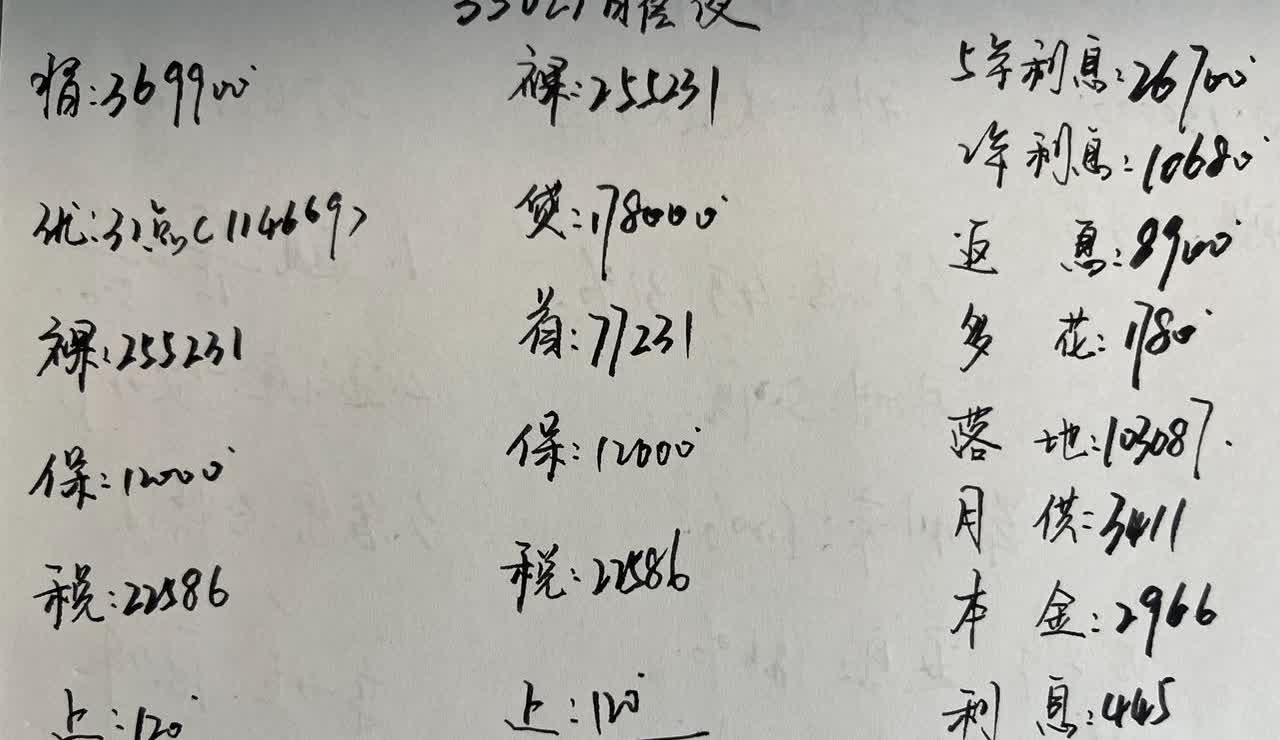 指:369900
优:31点(114669)
裸:255231
保:12000
税:22586
上:120
裸:255231
贷:178000
首:77231
保:12000
税:22586
上:120
5年利息:26700
2年利息:10680
返息:8900
多花:1780
落地:103087.
月供:3411
本金:2966
利息:445